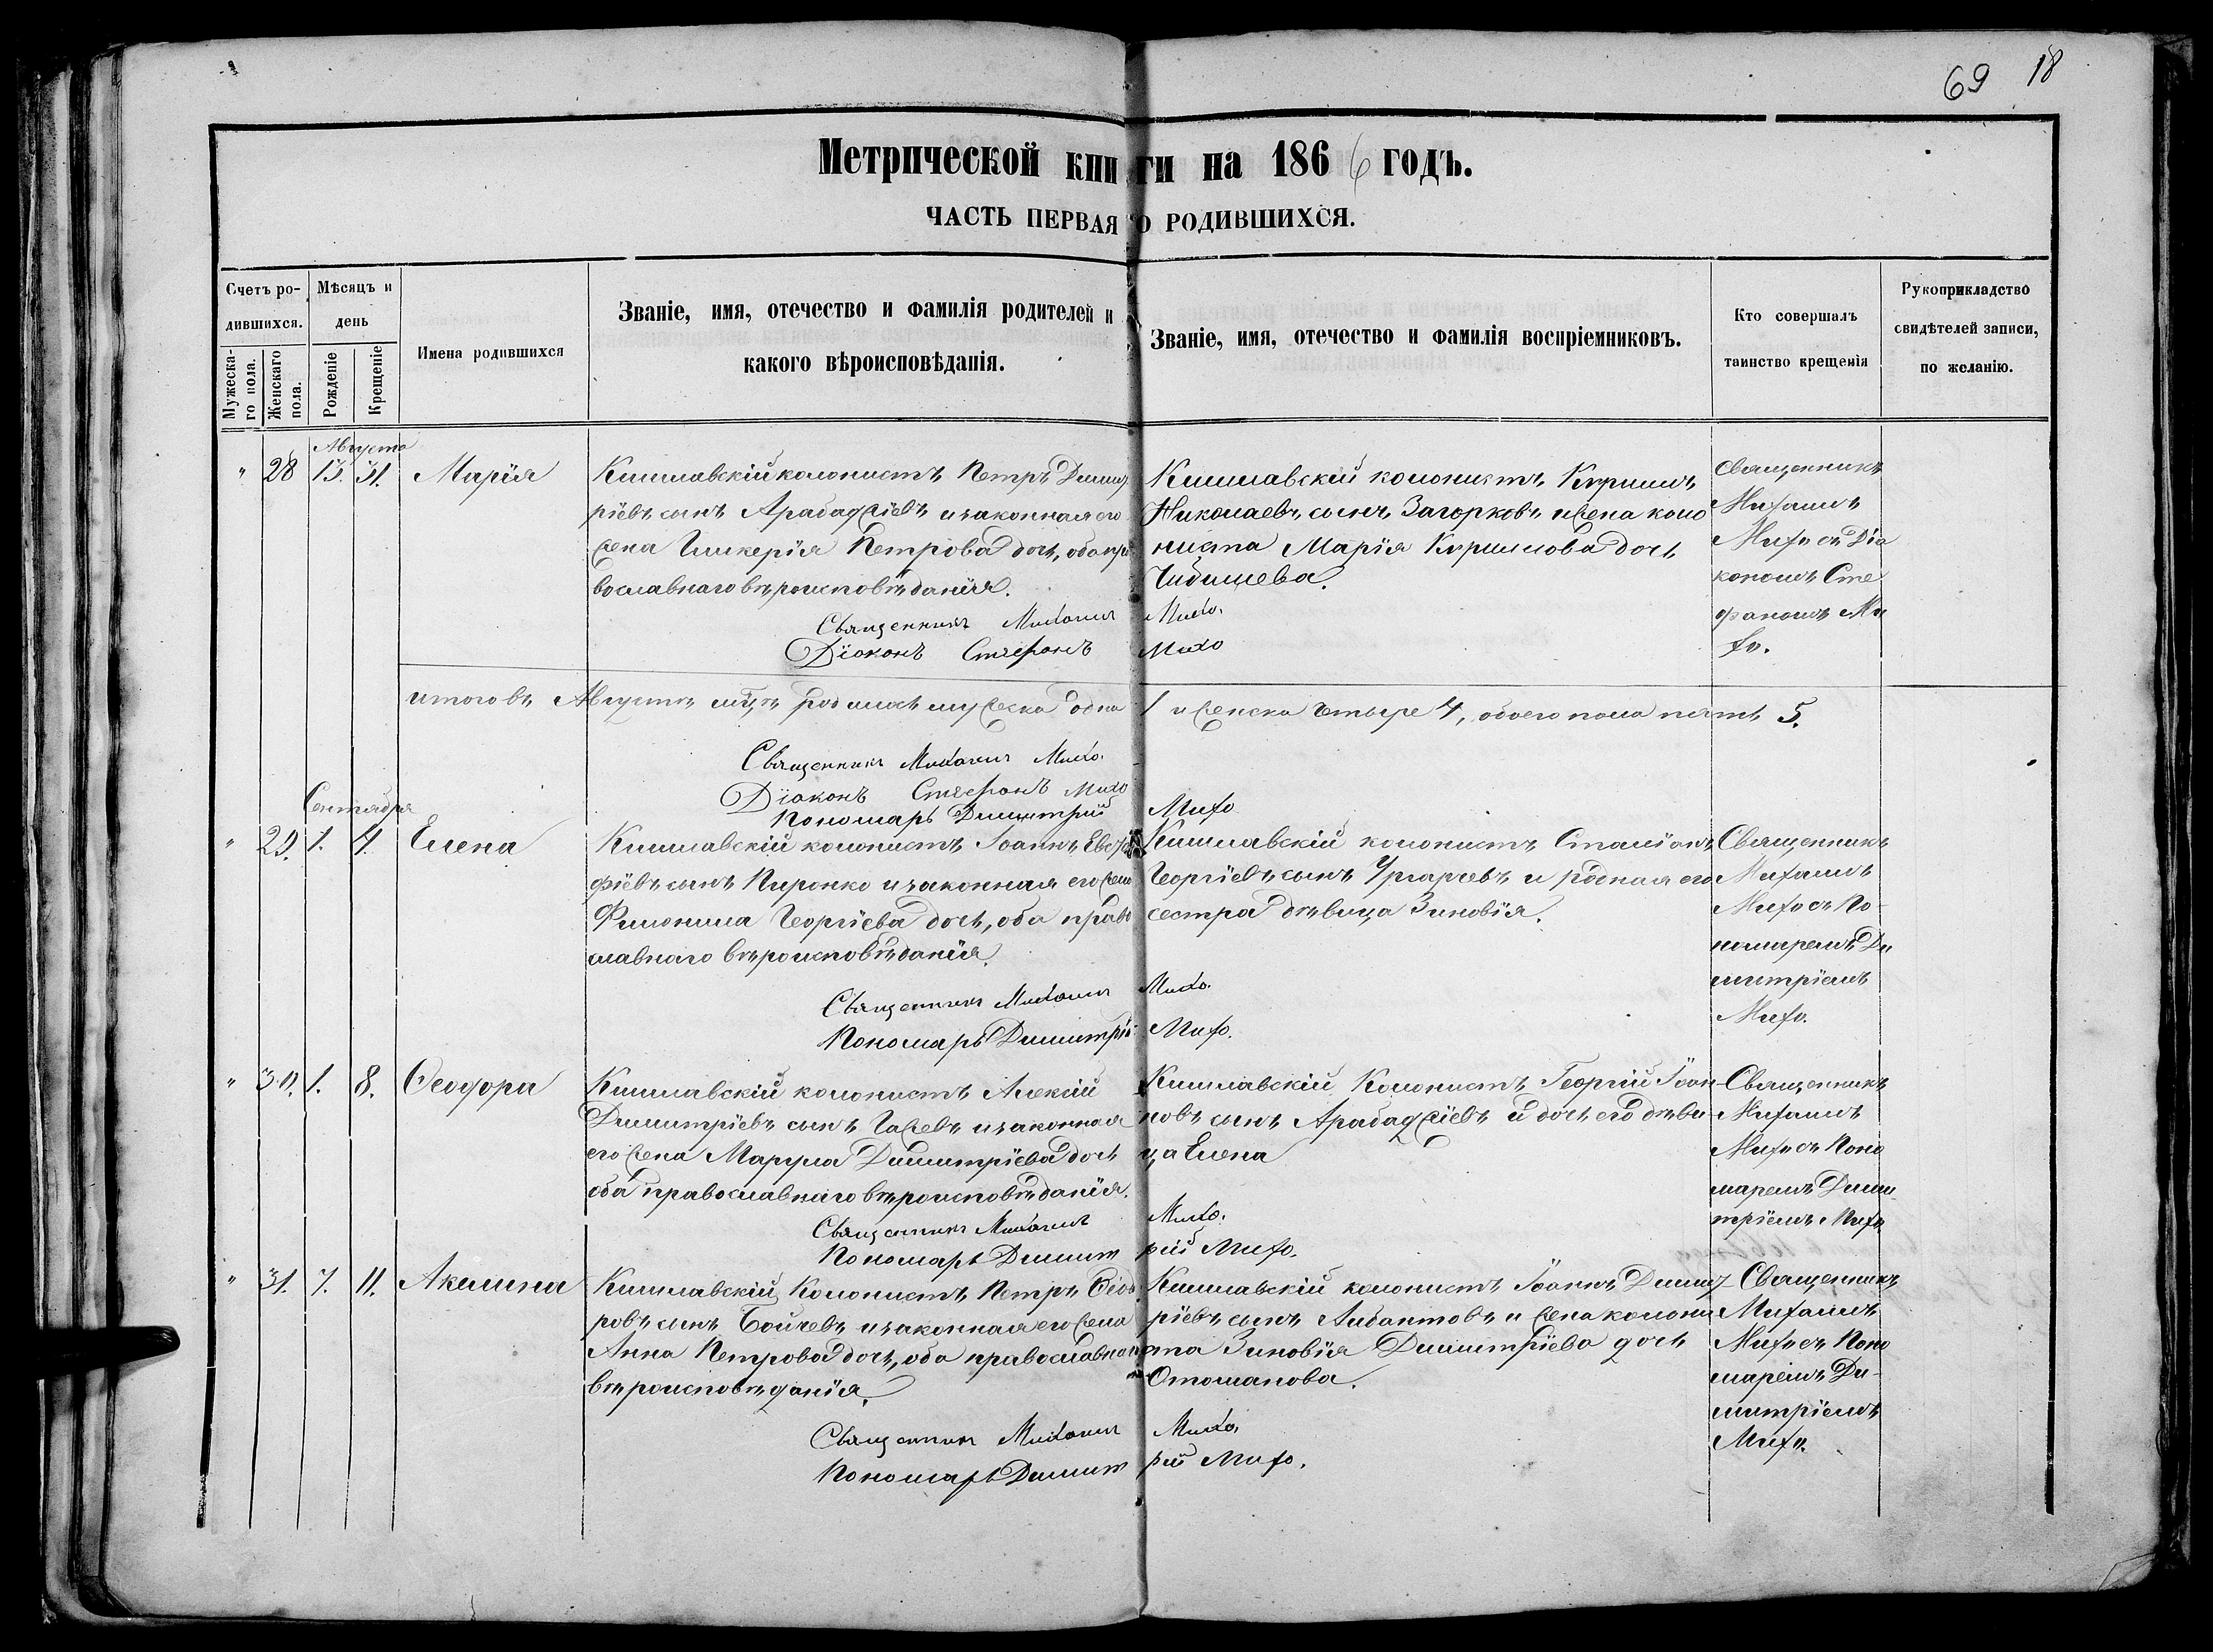 69 18
Метрической книги на 1866 годъ.
ЧАСТЬ ПЕРВАЯ О РОДИВШИХСЯ.
Счетъ родившихся.
Мужескаго пола.
Женскаго пола.
Мѣсяцъ и день
Рожденіе
Крещеніе
Имена родившихся
Званіе, имя, отечество и фамилія родителей и
какого вѣроисповѣданія.
Званіе, имя, отечество и фамилія воспріемниковъ.
Кто совершалъ
таинство крещенія
Рукоприкладство
свидѣтелей записи,
по желанію.
Августа
" 28 13. 31. Марія
Кишлавскій колонистъ Петръ Димит
ріевъ сынъ Арабаджіевъ и законная его
жена Гликерія Петрова дочь, оба пра
вославнаго вѣроисповѣданія.
Священникъ Михаилъ Михо.
Діаконъ Стефанъ Михо
Кишлавскій колонистъ Кириллъ
Николаевъ сынъ Загорковъ и жена коло
ниста Марія Кириллова дочь
Чибишева.
Священникъ
Михаилъ
Михо съ Діа
кономъ Сте
фаномъ Ми
хо.
итого въ Августѣ мцѣ родилось мужеска одна 1 и женска четыре 4, обоего пола пять 5.
Священникъ Михаилъ Михо.
Діаконъ Стефанъ Михо
Пономарь Димитрій Михо
Сентября
" 29. 1. 4. Елена
Кишлавскій колонистъ Іоаннъ
фіевъ сынъ Пиронко и законная его жена
Филонила Георгіева дочь, оба право
славнаго вѣроисповѣданія.
Священникъ Михаилъ Михо.
Пономарь Димитрій Михо.
Кишлавскій колонистъ Стаміонъ
Георгіевъ сынъ и родная его
сестра дѣвица Зиновія.
Священникъ
Михаилъ
Михо съ По-
номаремъ Ди
митріемъ
Михо.
" 30. 1. 8. Ѳеодора
Кишлавскій колонистъ Алексій
Димитріевъ сынъ Гажевъ и законная
его жена Марфа Димитріева дочь
оба православнаго вѣроисповѣданія.
Священникъ Михаилъ Михо.
Пономарь Димитрій Михо.
Кишлавскій Колонистъ Георгій Іоан
новъ сынъ Арабаджіевъ и дочь его дѣви
ца Елена
Священникъ
Михаилъ
Михо съ Поно
маремъ Дими
тріемъ Михо
" 31. 7. 11. Акилина
Кишлавскій Колонистъ Петръ Ѳеодо
ровъ сынъ Бойчевъ и законная его жена
Анна Петрова дочь, оба православнаго
вѣроисповѣданія.
Священникъ Михаилъ Михо.
Пономарь Димитрій Михо.
Кишлавскій колонистъ Іоаннъ Димит
ріевъ сынъ Либантовъ и жена колони
ста Зиновія Димитріева дочь
Отоманова.
Священникъ
Михаилъ
Михо съ Поно
маремъ Ди-
митріемъ
Михо.